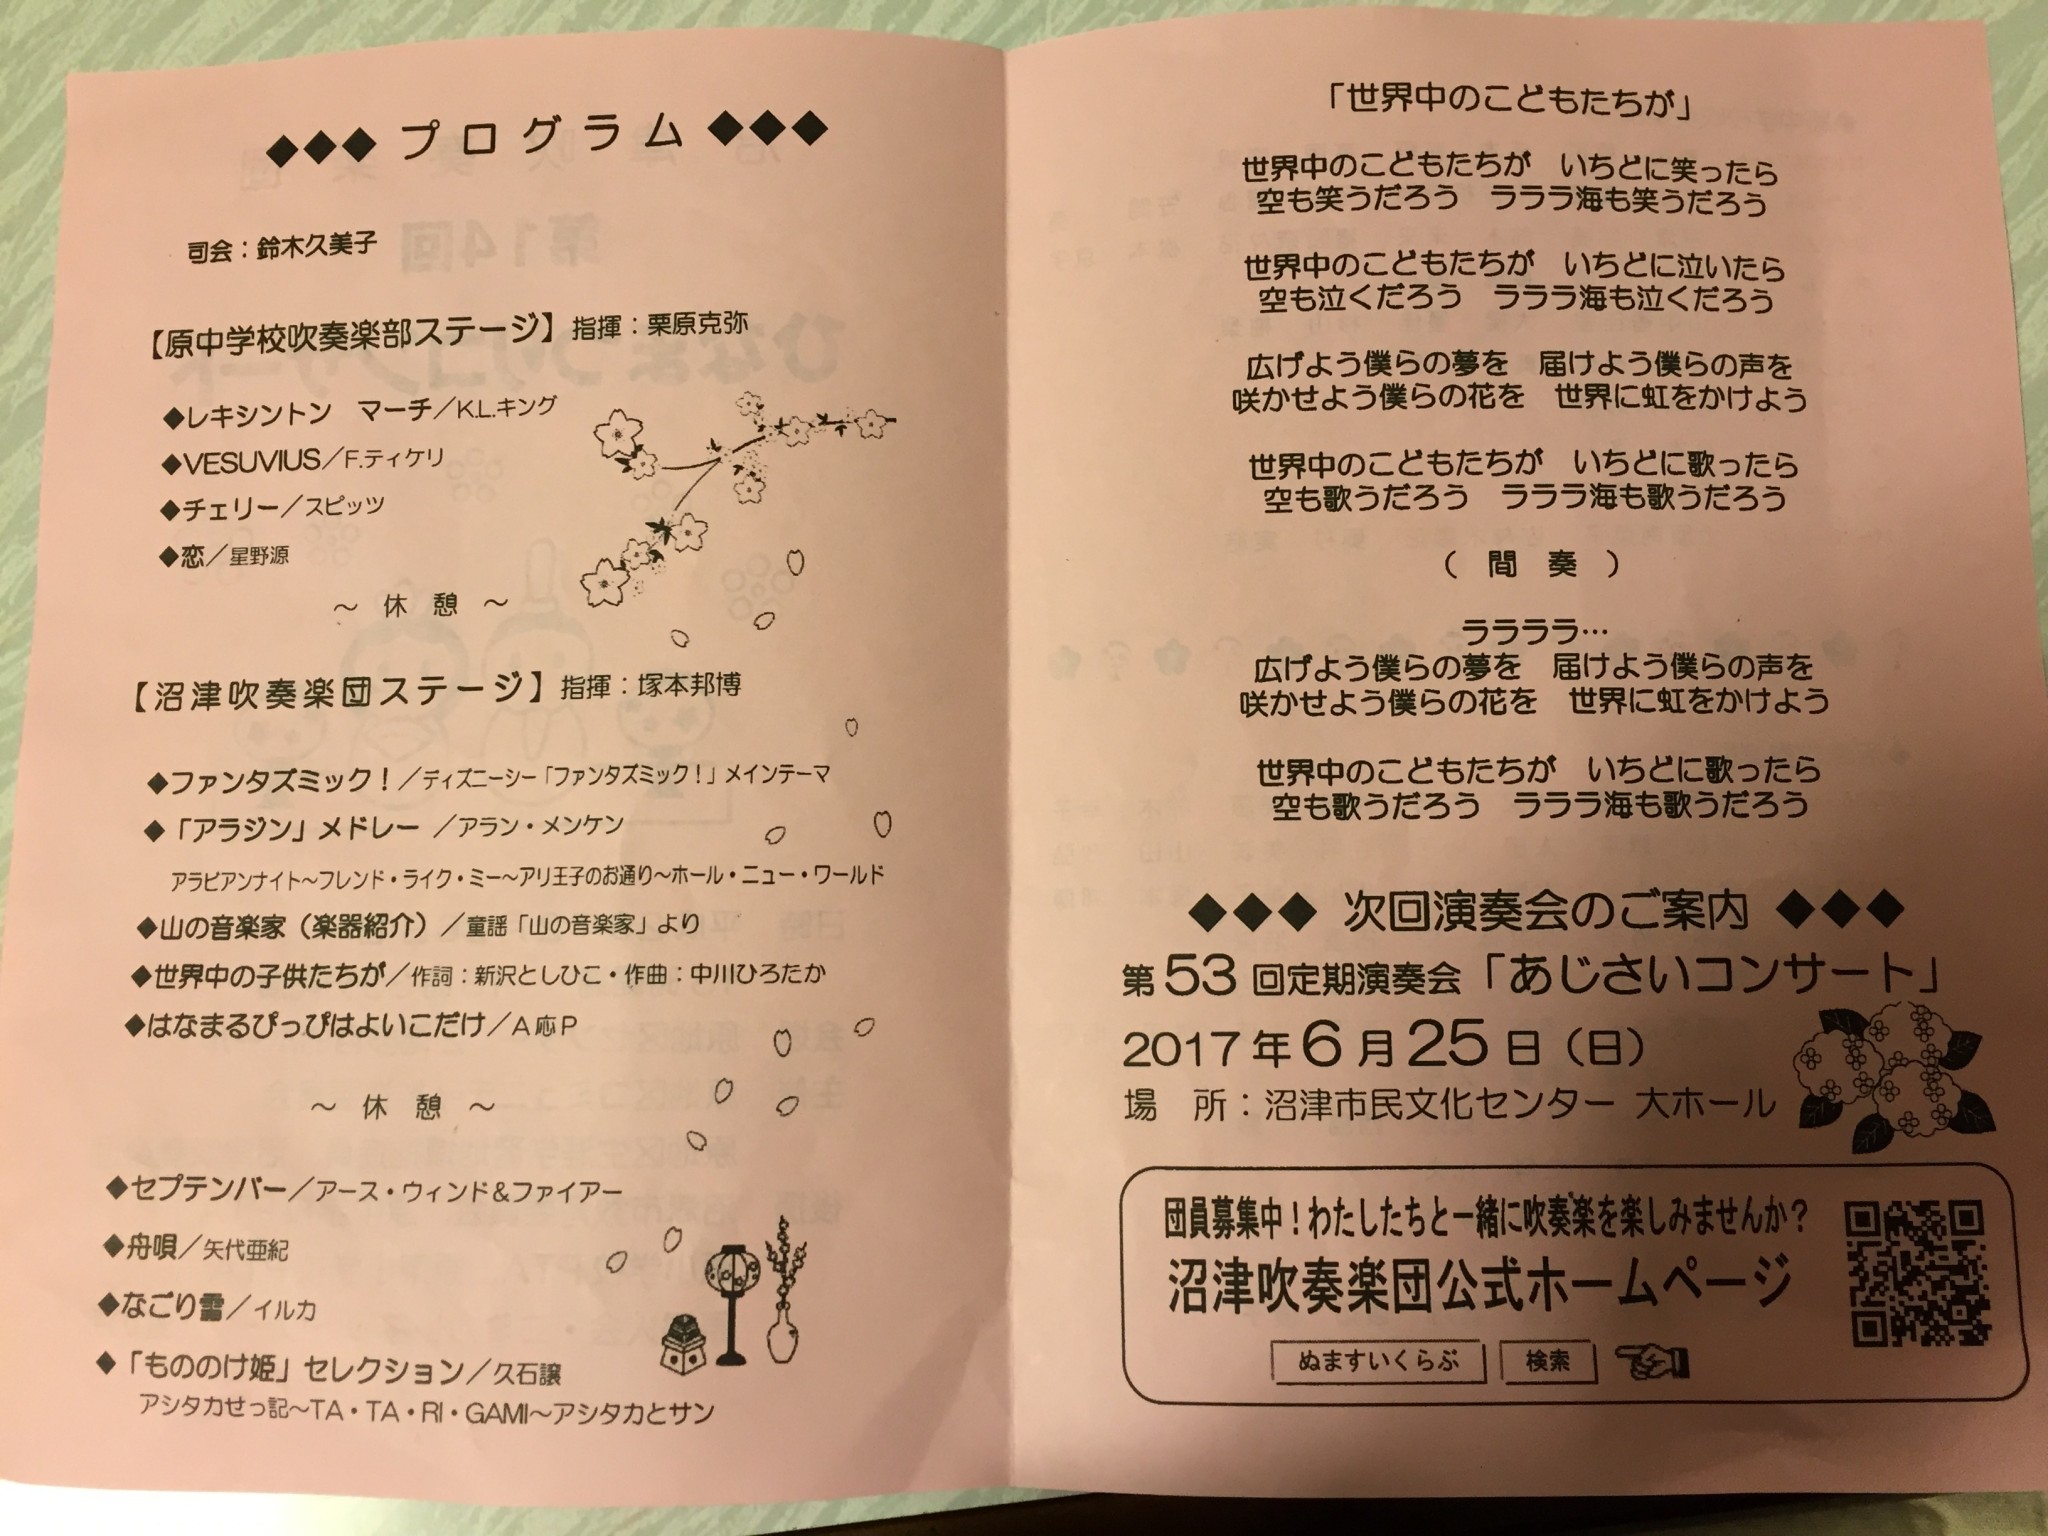 ◆◆◆ プログラム ◆◆◆
司会：鈴木久美子
【原中学校吹奏楽部ステージ】指揮：栗原克弥
◆レキシントン　マーチ／K.L.キング
◆VESUVIUS／F.ティケリ
◆チェリー／スピッツ
◆恋／星野源
～　休　憩　～
【沼津吹奏楽団ステージ】指揮：塚本邦博
◆ファンタズミック！／ディズニーシー「ファンタズミック！」メインテーマ
◆「アラジン」メドレー ／アラン・メンケン
アラビアンナイト～フレンド・ライク・ミー～アリ王子のお通り～ホール・ニュー・ワールド
◆山の音楽家（楽器紹介）／童謡「山の音楽家」より
◆世界中の子供たちが／作詞：新沢としひこ・作曲：中川ひろたか
◆はなまるぴっぴはよいこだけ／A応P
～　休　憩　～
◆セプテンバー／アース・ウィンド＆ファイアー
◆舟唄／矢代亜紀
◆なごり雪／イルカ
◆「もののけ姫」セレクション／久石譲
アシタカせっ記～TA・TA・RI・GAMI～アシタカとサン
「世界中のこどもたちが」
世界中のこどもたちが　いちどに笑ったら
空も笑うだろう　ラララ海も笑うだろう
世界中のこどもたちが　いちどに泣いたら
空も泣くだろう　ラララ海も泣くだろう
広げよう僕らの夢を　届けよう僕らの声を
咲かせよう僕らの花を　世界に虹をかけよう
世界中のこどもたちが　いちどに歌ったら
空も歌うだろう　ラララ海も歌うだろう
（　間　奏　）
ララララ…
広げよう僕らの夢を　届けよう僕らの声を
咲かせよう僕らの花を　世界に虹をかけよう
世界中のこどもたちが　いちどに歌ったら
空も歌うだろう　ラララ海も歌うだろう
◆◆◆ 次回演奏会のご案内 ◆◆◆
第53回定期演奏会「あじさいコンサート」
2017年6月25日（日）
場　所：沼津市民文化センター 大ホール
団員募集中！わたしたちと一緒に吹奏楽を楽しみませんか？
沼津吹奏楽団公式ホームページ
ぬますいくらぶ　検索